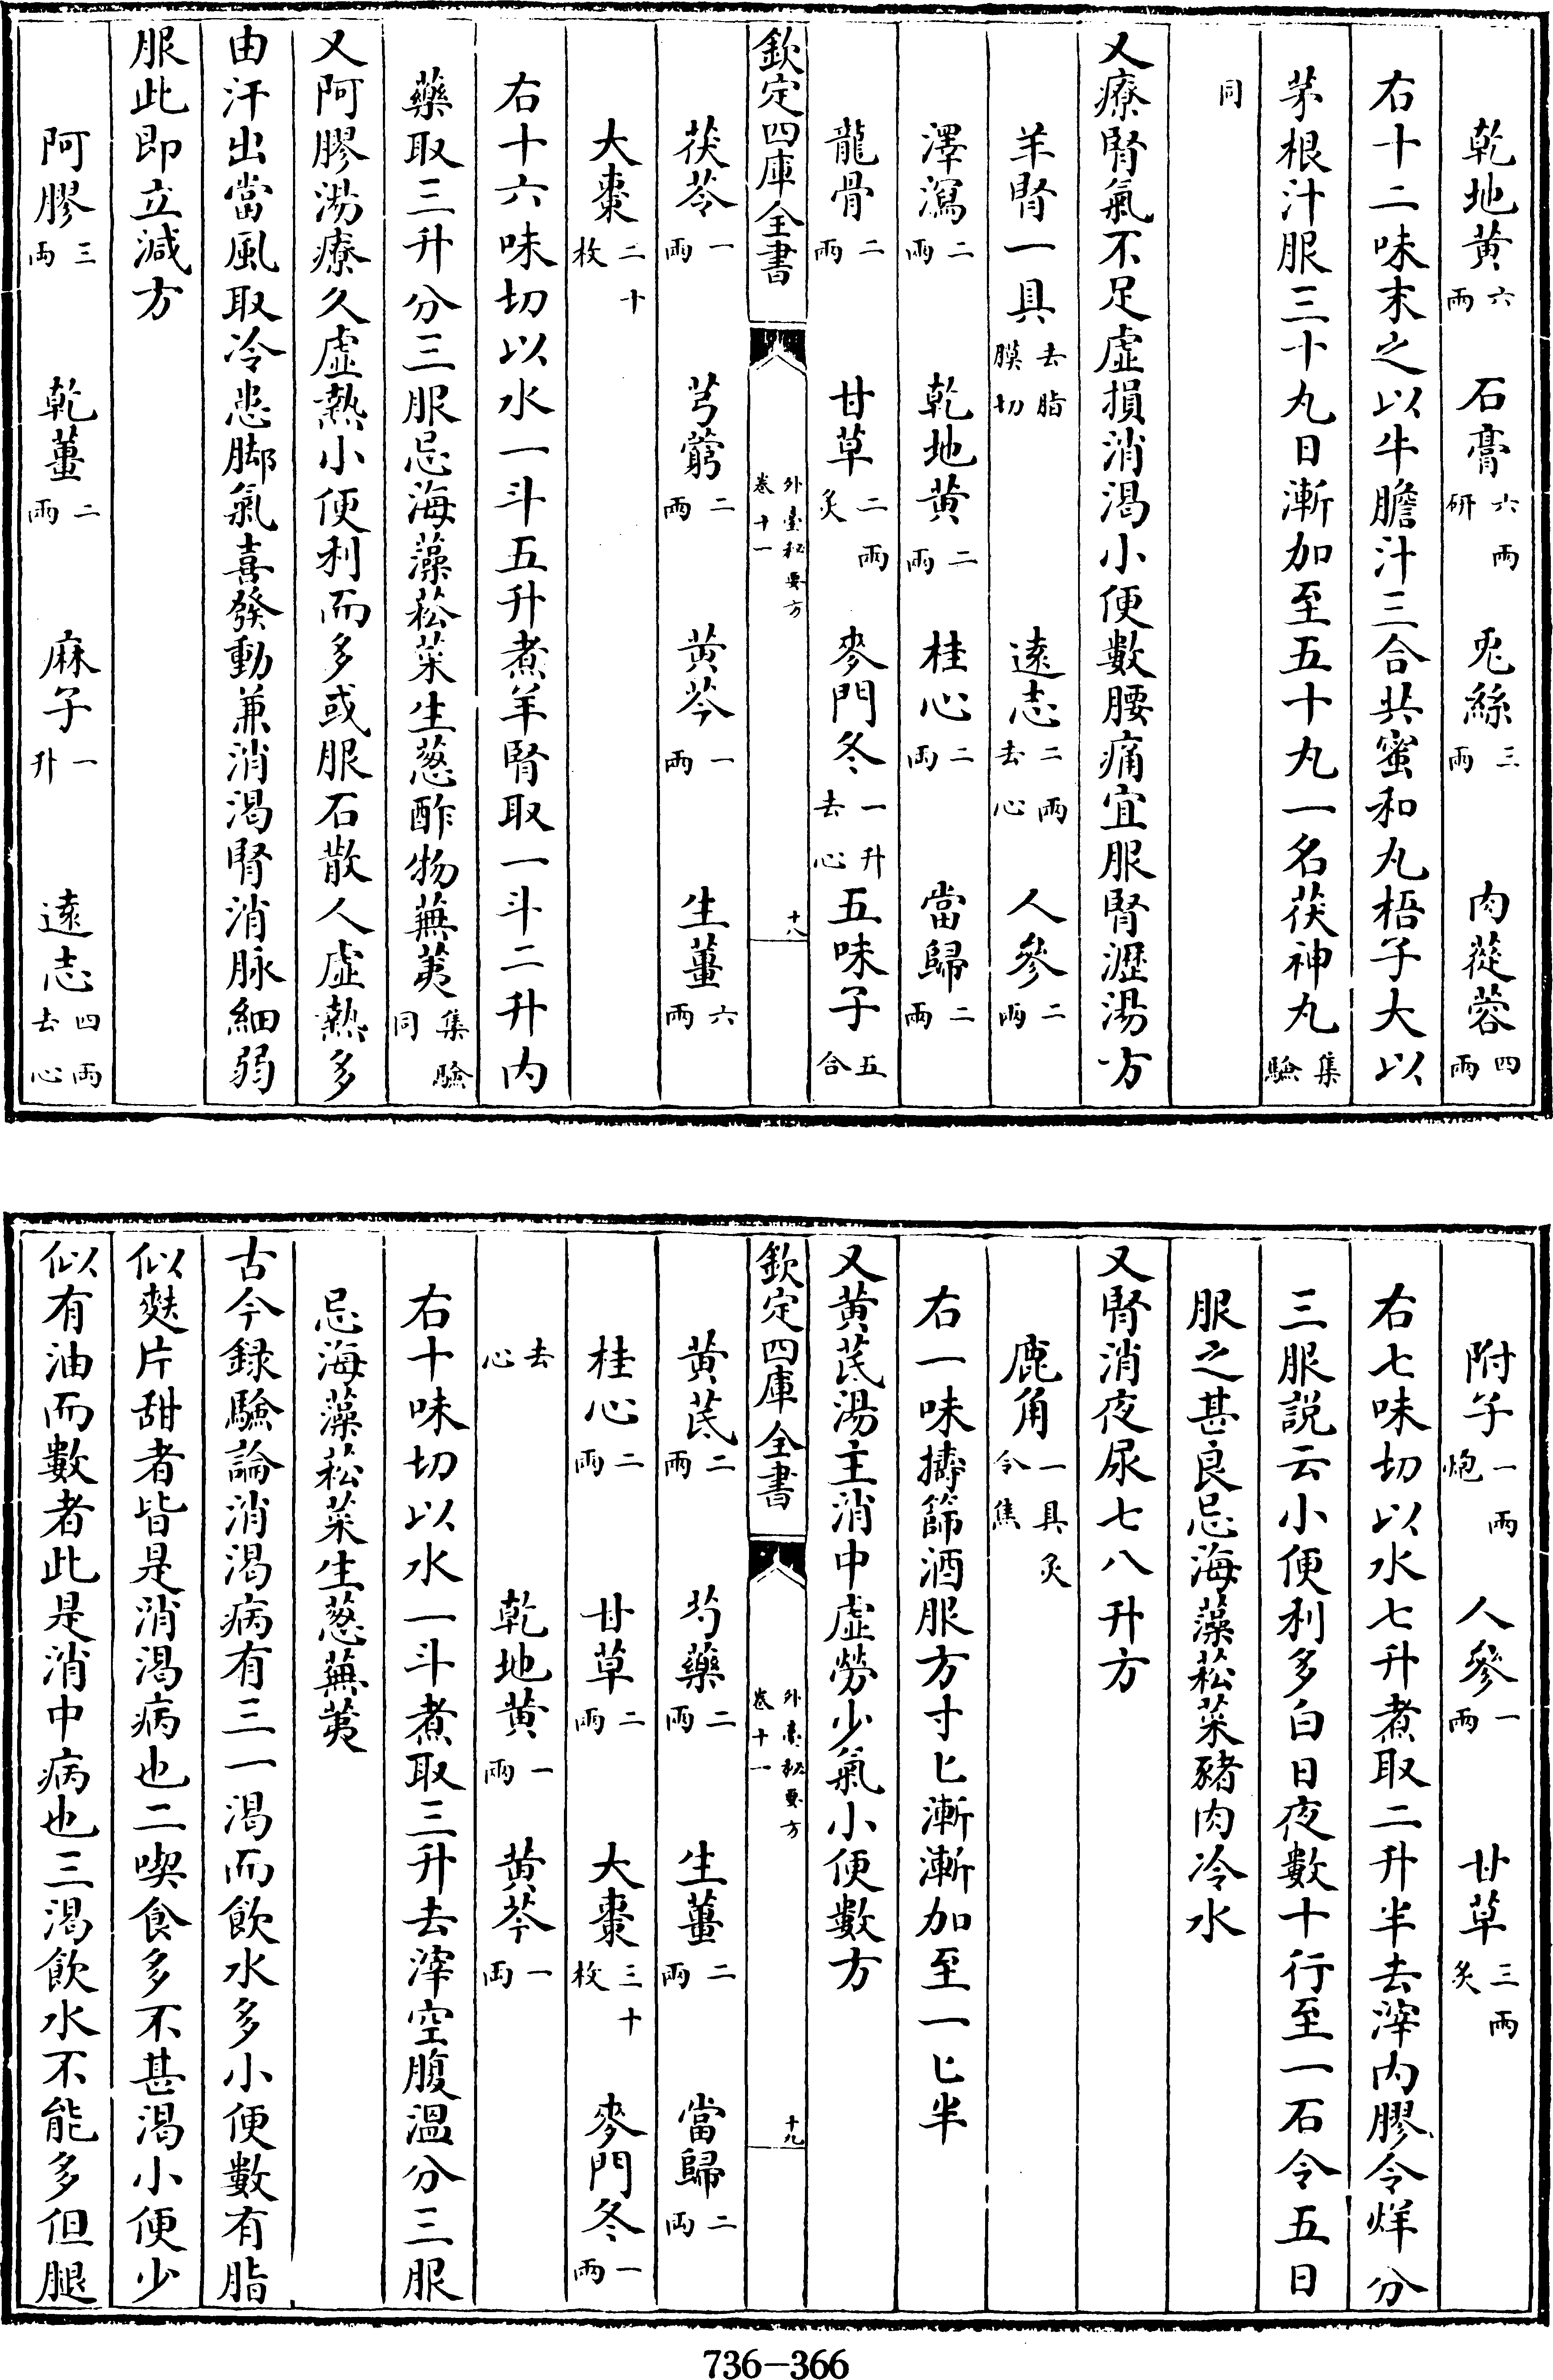 乾地黄六兩 石膏六兩研 兎絲三兩 肉蓯蓉四兩
右十二味末之以牛膽汁三合共蜜和丸梧子大以
茅根汁服三十丸日漸加至五十丸一名茯神丸集驗
同
又療腎氣不足虛損消渴小便數腰痛宜服腎瀝湯方
羊腎一具去脂膜切 遠志二兩去心 人參二兩
澤瀉二兩 乾地黄二兩 桂心二兩 當歸二兩
龍骨二兩 甘草二兩炙 麥門冬一升去心 五味子五合
欽定四庫全書 外臺秘要方卷十一 十八
茯苓一兩 芎藭二兩 黄芩一兩 生薑六兩
大棗二十枚
右十六味切以水一斗五升煮羊腎取一斗二升内
藥取三升分三服忌海藻菘菜生葱酢物蕪荑集驗同
又阿膠湯療久虛熱小便利而多或服石散人虛熱多
由汗出當風取冷患脚氣喜發動兼消渴腎消脉細弱
服此即立減方
阿膠三兩 乾薑二兩 麻子一升 遠志四兩去心
附子一兩炮 人參一兩 甘草三兩炙
右七味切以水七升煮取二升半去滓内膠令烊分
三服説云小便利多白日夜數十行至一石令五日
服之甚良忌海藻菘菜豬肉冷水
又腎消夜尿七八升方
鹿角一具炙令焦
右一味擣篩酒服方寸匕漸漸加至一匕半
又黄芪湯主消中虛勞少氣小便數方
欽定四庫全書 外臺秘要方卷十一 十九
黄芪二兩 芍藥二兩 生薑二兩 當歸二兩
桂心二兩 甘草二兩 大棗三十枚 麥門冬一兩
去心 乾地黄一兩 黄芩一兩
右十味切以水一斗煮取三升去滓空腹溫分三服
忌海藻菘菜生葱蕪荑
古今録驗論消渴病有三一渴而飲水多小便數有脂
似麩片甜者皆是消渴病也二喫食多不甚渴小便少
似有油而數者此是消中病也三渴飲水不能多但腿
736-366